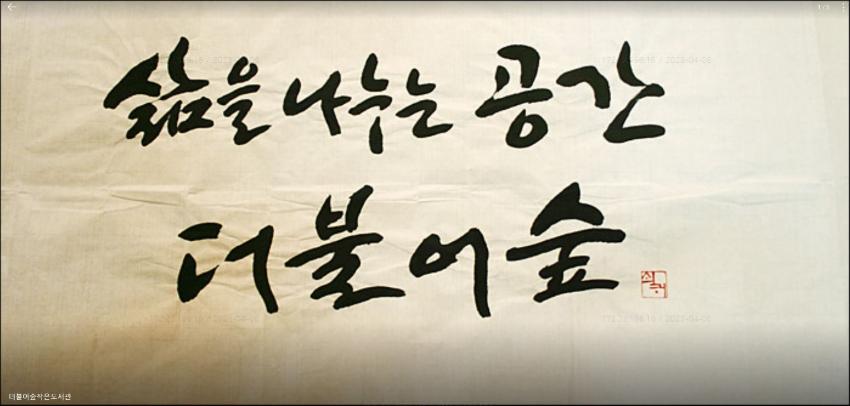 1/3
삶을 나누는 공간
더불어숲
더불어숲작은도서관